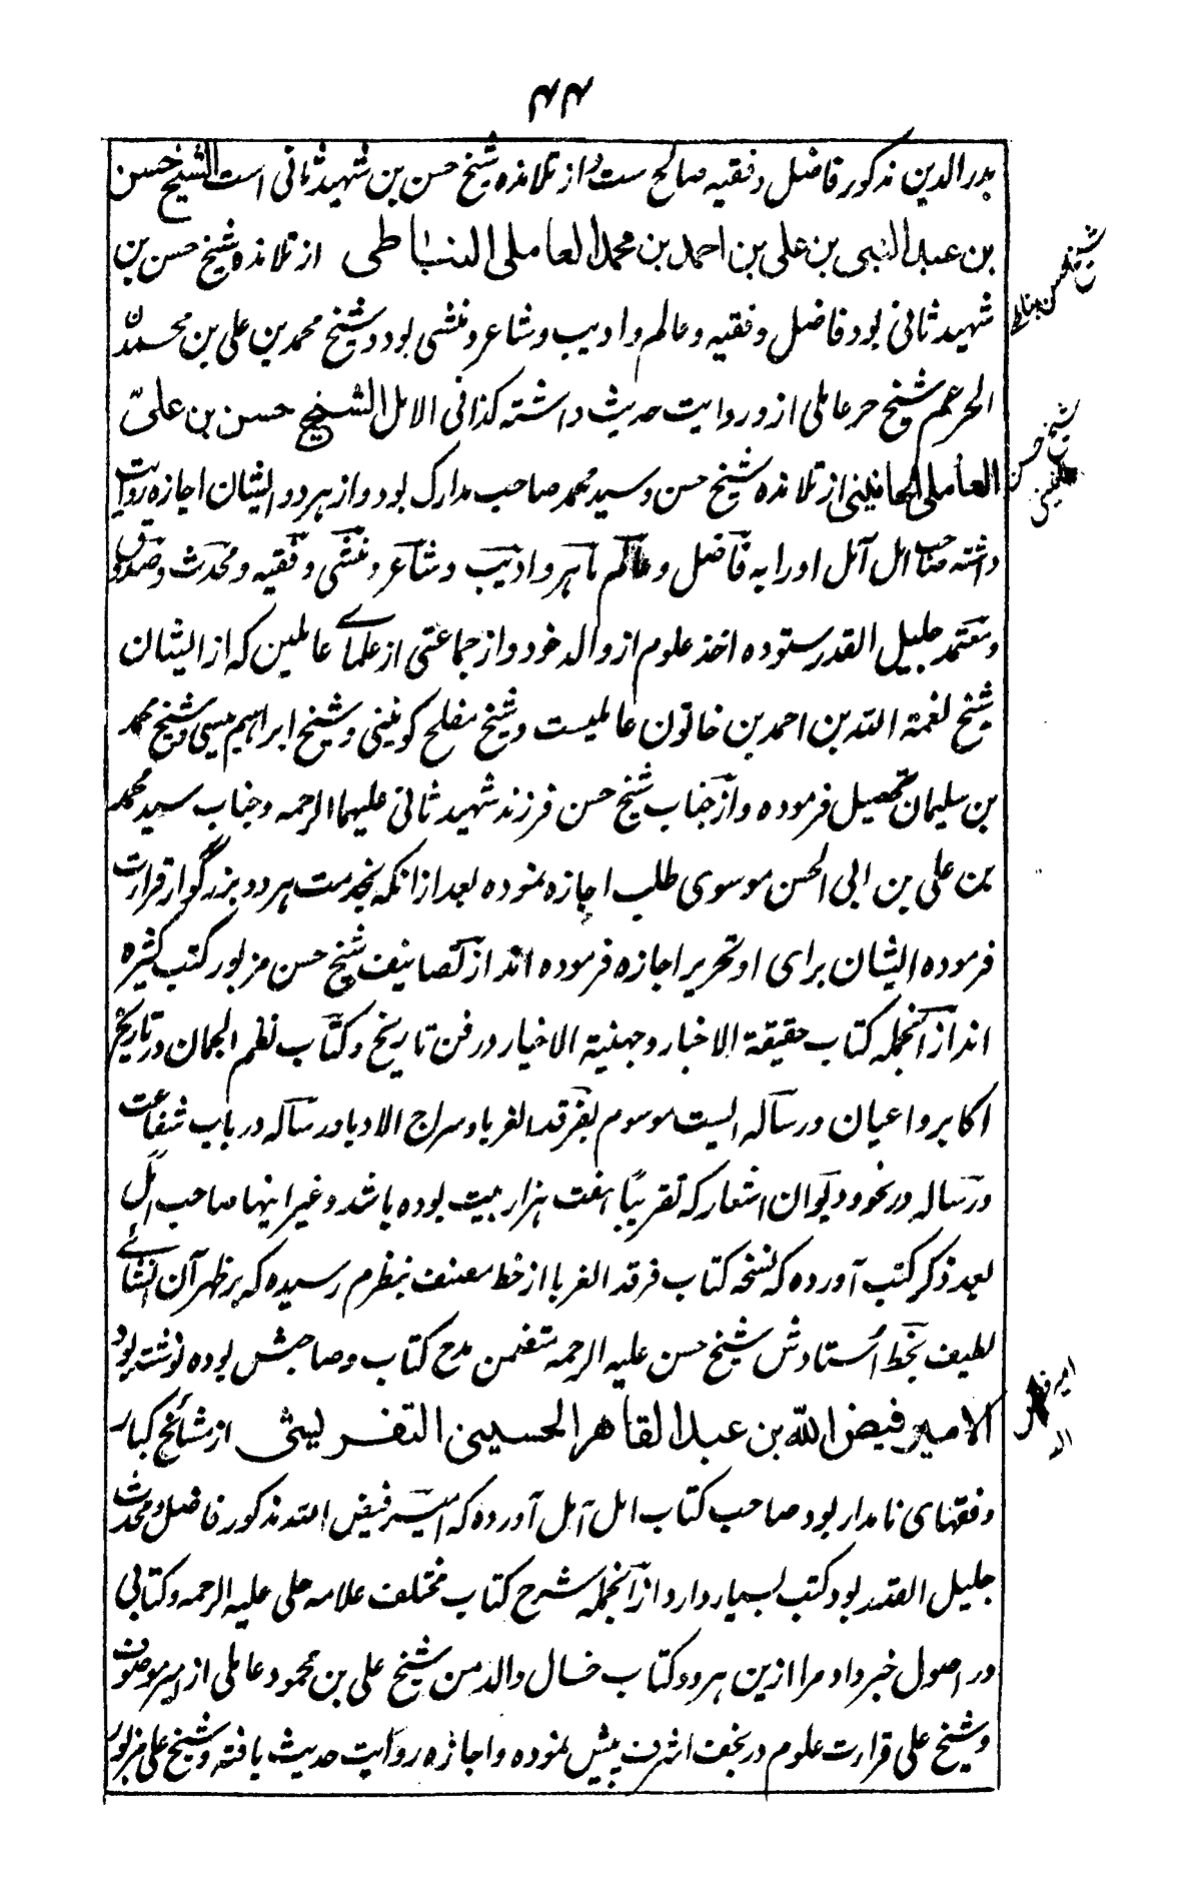 ۴۴
بدرالدین مذکور فاضل و فقیه صالح ست و از تلامذه شیخ حسن بن شهید ثانی است الشیخ حسن
بن عبد النبی بن علی بن احمد بن محمد العاملی النباطی از تلامذه شیخ حسن بن
شهید ثانی بود فاضل و فقیه و عالم و ادیب و شاعر و منشی بود و شیخ محمد بن علی بن محمد
الحر عم شیخ حر عاملی ازو روایت حدیث داشته کذا فی الامل الشیخ حسن بن علی
العاملی الحانینی از تلامذه شیخ حسن و سید محمد صاحب مدارک بود و از هر دو ایشان اجازه روایت
داشته صاحب امل آمل او را به فاضل و عالم ماهر و ادیب و شاعر و منشی و فقیه و محدث و صدوق
و معتمد جلیل القدر ستوده اخذ علوم از والد خود و از جماعتی از علمای عاملین که از ایشان
شیخ نعمة الله بن احمد بن خاتون عاملیست و شیخ مفلح کونینی و شیخ ابراهیم میسی و شیخ محمد
بن سلیمان تحصیل فرموده و از جناب شیخ حسن فرزند شهید ثانی علیهما الرحمه و جناب سید محمد
بن علی بن ابی الحسن موسوی طلب اجازه نموده بعد از انکه بخدمت هر دو بزرگوار قرارت
فرموده ایشان برای او تحریر اجازه فرموده اند از تصانیف شیخ حسن مزبور کتب کثیره
اند از آنجمله کتاب حقیقة الاخبار و جهنیة الاخبار در فن تاریخ و کتاب نظم الجمان در تاریخ
اکابر و اعیان و رساله ایست موسوم بفرقد الغربا و سراج الادبا و رساله در باب شفاعت
و رساله در نحو و دیوان اشعار که تقریباً هفت هزار بیت بوده باشد و غیر اینها صاحب امل
بعد ذکر کتب آورده که نسخه کتاب فرقد الغربا از خط مصنف بنظرم رسیده که بر ظهر آن انشائے
لطیف بخط اُستادش شیخ حسن علیه الرحمه متضمن مدح کتاب و صاحبش بوده نوشته بود
الامیر فیض الله بن عبد القاهر الحسینی التفریشی از مشائخ کبار
و فقهای نامدار بود صاحب کتاب امل آمل آورده که امیر فیض الله مذکور فاضل و محدث
جلیل القدر بود کتب بسیار دارد از آنجمله شرح کتاب مختلف علامه حلی علیه الرحمه و کتابی
در اصول خبر داد مرا ازین هر دو کتاب خال والد من شیخ علی بن محمود عاملی از امیر موصوف
و شیخ علی قرارت علوم در نجف اشرف پیش نموده و اجازه روایت حدیث یافته و شیخ علی مزبور
شیخ حسن نباطی
شیخ حسن